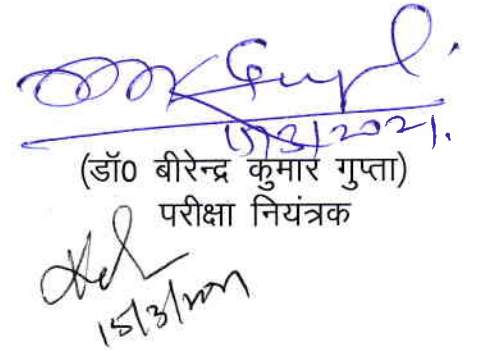 Gupta
15/3/2021.
(डॉ0 बीरेन्द्र कुमार गुप्ता)
परीक्षा नियंत्रक
15/3/2021